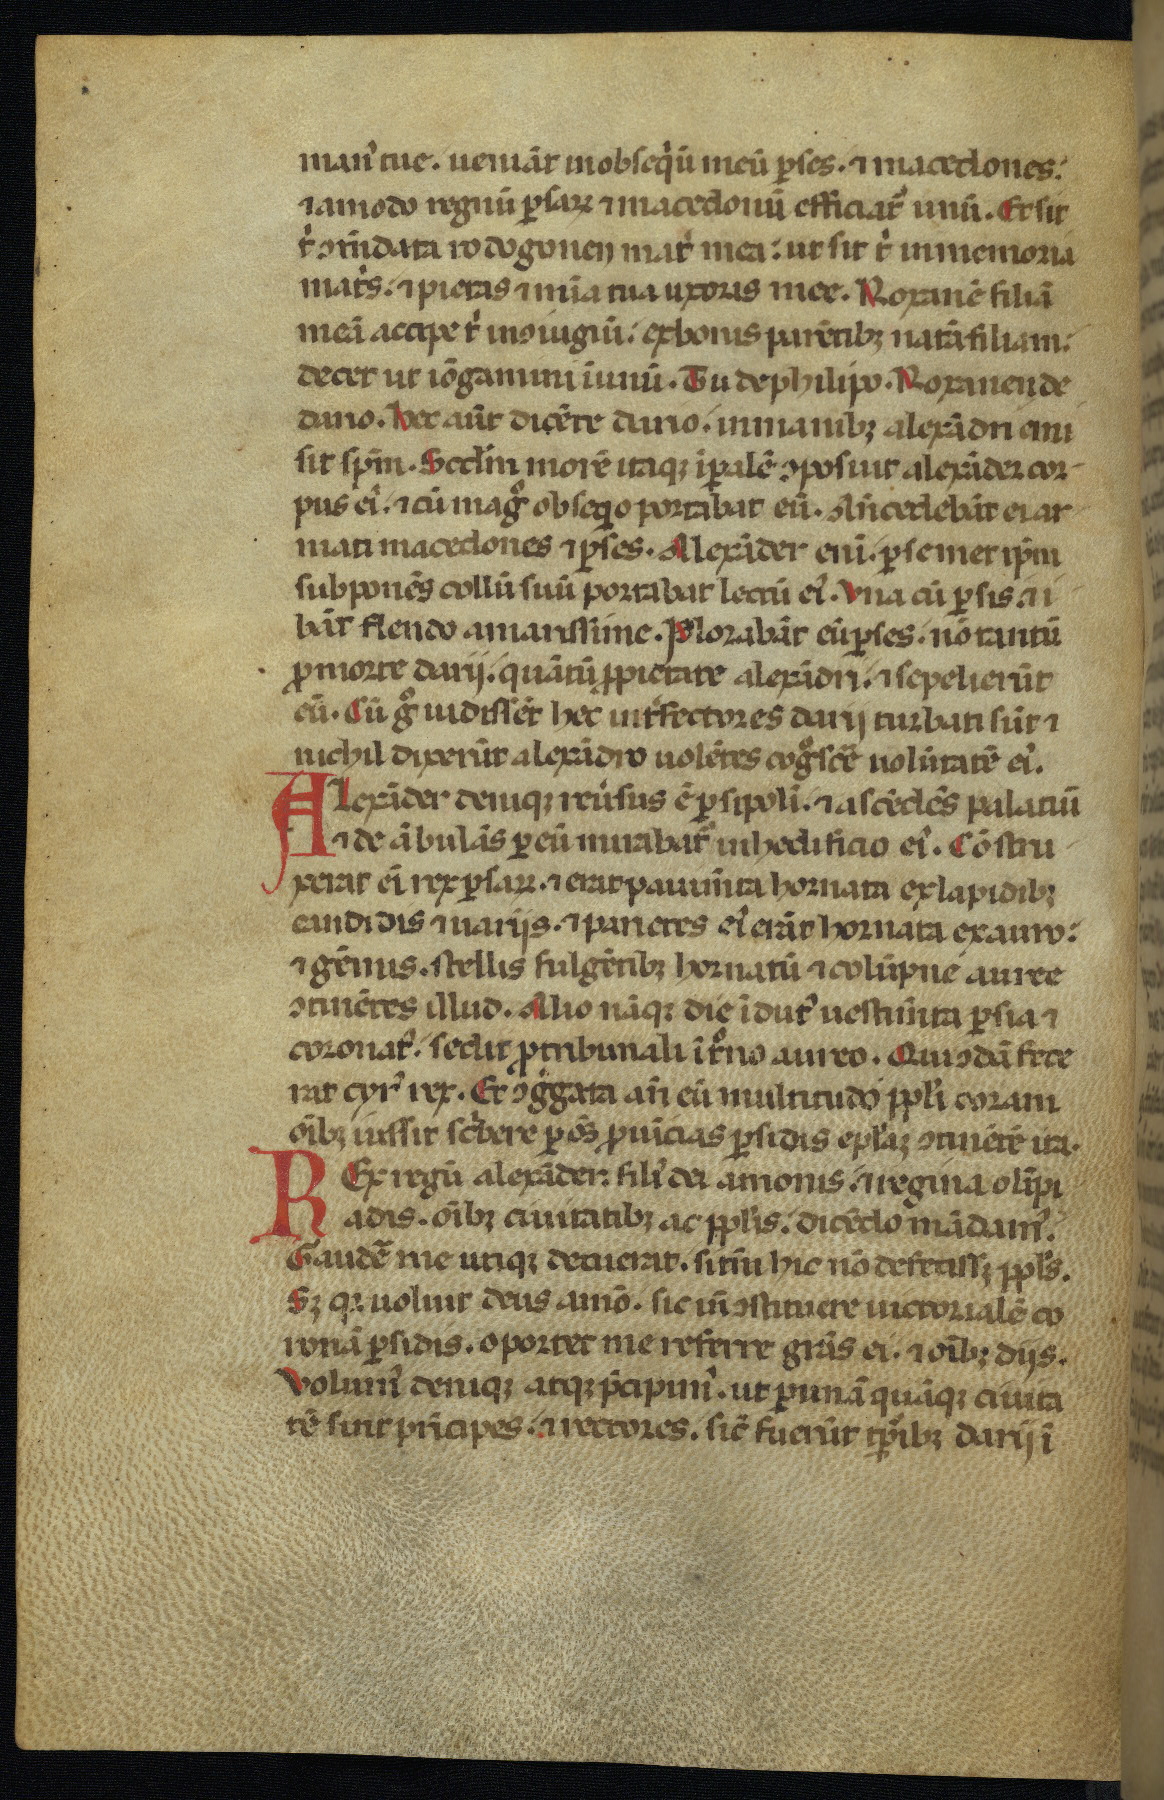 man᾿ tue. ueniāt in obseq̇ū meū ꝑses. ⁊ macedones.
⁊ amodo regnū ꝑsaꝝ ⁊ macedonū efficiat᷑ unū. Et sit
t᷑ ↄm̄data rodogonen mat᷑ mea. ut sit t᷑ in memoria
mat᷑s. ⁊ pietas ⁊ mīa tua uxoris mee. Roxanē filiā
meā accipe t᷑ in ↄiugiū. ex bonis parētibꝫ natā filiam.
decet ut iōgamini ī unū. Tu de philipo. Roxanen de
dario. hec aūt dicēte dario. in manibꝫ alexādri emi
sit sp̄m. Scdm̄ morē itaqꝫ īꝑalē ↄposuit alexāder cor-
pus ei᾿. ⁊ cū mag̊ obseqo portabat eū. An̄cedebāt ei ar
mati macedones ⁊ ꝑses. Alexāder enī. ꝑ semet ip̄m
subponēs collū suū portabat lectū ei᾿. Vna cū ꝑsis. ⁊ i
bāt flendo amarissime. Plorabāt eū ꝑses. nō tantū
ꝓ morte darij. quātū ꝓ pietate alexādri. ⁊ sepelierūt
eū. Cū g̊ uidissēt hec int᷑fectores darij turbati sūt ⁊
nichil dixerūt alexādro uolētes cog̊scē᷑ uolūtatē ei᾿.
Alexāder deniqꝫ reu᷑sus ē ꝑsipolī. ⁊ ascēdēs palatiū
⁊ de ābulās ꝑ eū mirabat᷑ in hedificio ei᾿. Cōstru
xerat eī rex ꝑsaꝝ. ⁊ erat pauim̄ta hornata ex lapidibꝫ
candidis ⁊ uarijs. ⁊ parietes ei᾿ erāt hornata ex auro.
⁊ gēmis. stellis fulgētibꝫ hornatū ⁊ colūpne auree
ↄtinētes illud. Alio nāqꝫ die īdut᾿ uestim̄ta ꝑsia ⁊
coronat᾿. sedit ꝓ tribunali ī t᷑no aureo. Qui ↄdā fece
rat cyr᾿ rex. Et ↄg̊gata an̄ eū multitudo ppl̄i coram
oībꝫ iussit sc᷑bere ꝑ os̄ ꝓuīcias ꝑsidis epl̄aꝫ ↄtinētē ita.
Rex regū alexāder. fili᾿ dei amonis. ⁊ regina olīpi
adis. oībꝫ ciuitatibꝫ ac ppl̄is. dicēdo mādam᾿.
Gaudē᷑ me utiqꝫ decuerat. si tm̄ hic nō defecissꝫ ppl̄s.
Sꝫ qꝛ uoluit deus amō. sic m̄ ↄstituere uictorialē co
ronā ꝑsidis. oportet me referre grās ei. ⁊ oībꝫ dijs.
Volum᾿ deniqꝫ atqꝫ p᷑cipim᾿. ut ꝑ unā quāqꝫ ciuita
tē sint principes. ⁊ rectores. sic̄ fuerūt tꝑibꝫ darij ī